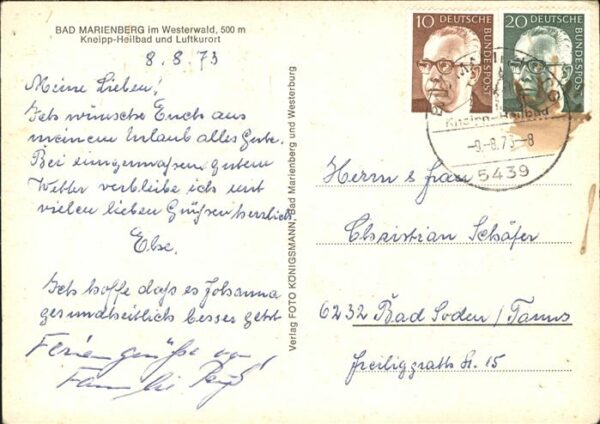 BAD MARIENBERG im Westerwald, 500 m
Kneipp-Heilbad und Luftkurort
8.8.73
Meine Lieben!
Ich wünsche Euch aus
meinem Urlaub alles Gute.
Bei einigermassen gutem
Wetter verbleibe ich mit
vielen lieben Grüßen herzlich
Else.
Ich hoffe daß es Johanna
gesundheitlich besser geht
Feriengrüße von
Familie
Verlag FOTO KÖNIGSMANN, Bad Marienberg und Westerburg
10 DEUTSCHE BUNDESPOST
20 DEUTSCHE BUNDESPOST
Kneipp-Heilbad
-9.-8.73-8
5439
Herrn & Frau
Christian Schäfer
6232 Bad Soden / Taunus
Freiliggrath St. 15